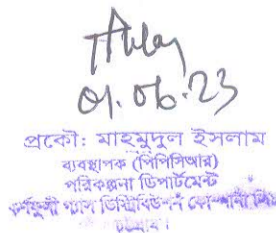 01.06.23
প্রকৌ: মাহমুদুল ইসলাম
ব্যবস্থাপক (পিপিসিআর)
পরিকল্পনা ডিপার্টমেন্ট
কর্ণফুলী গ্যাস ডিস্ট্রিবিউশন কোম্পানী লিঃ
চট্টগ্রাম।